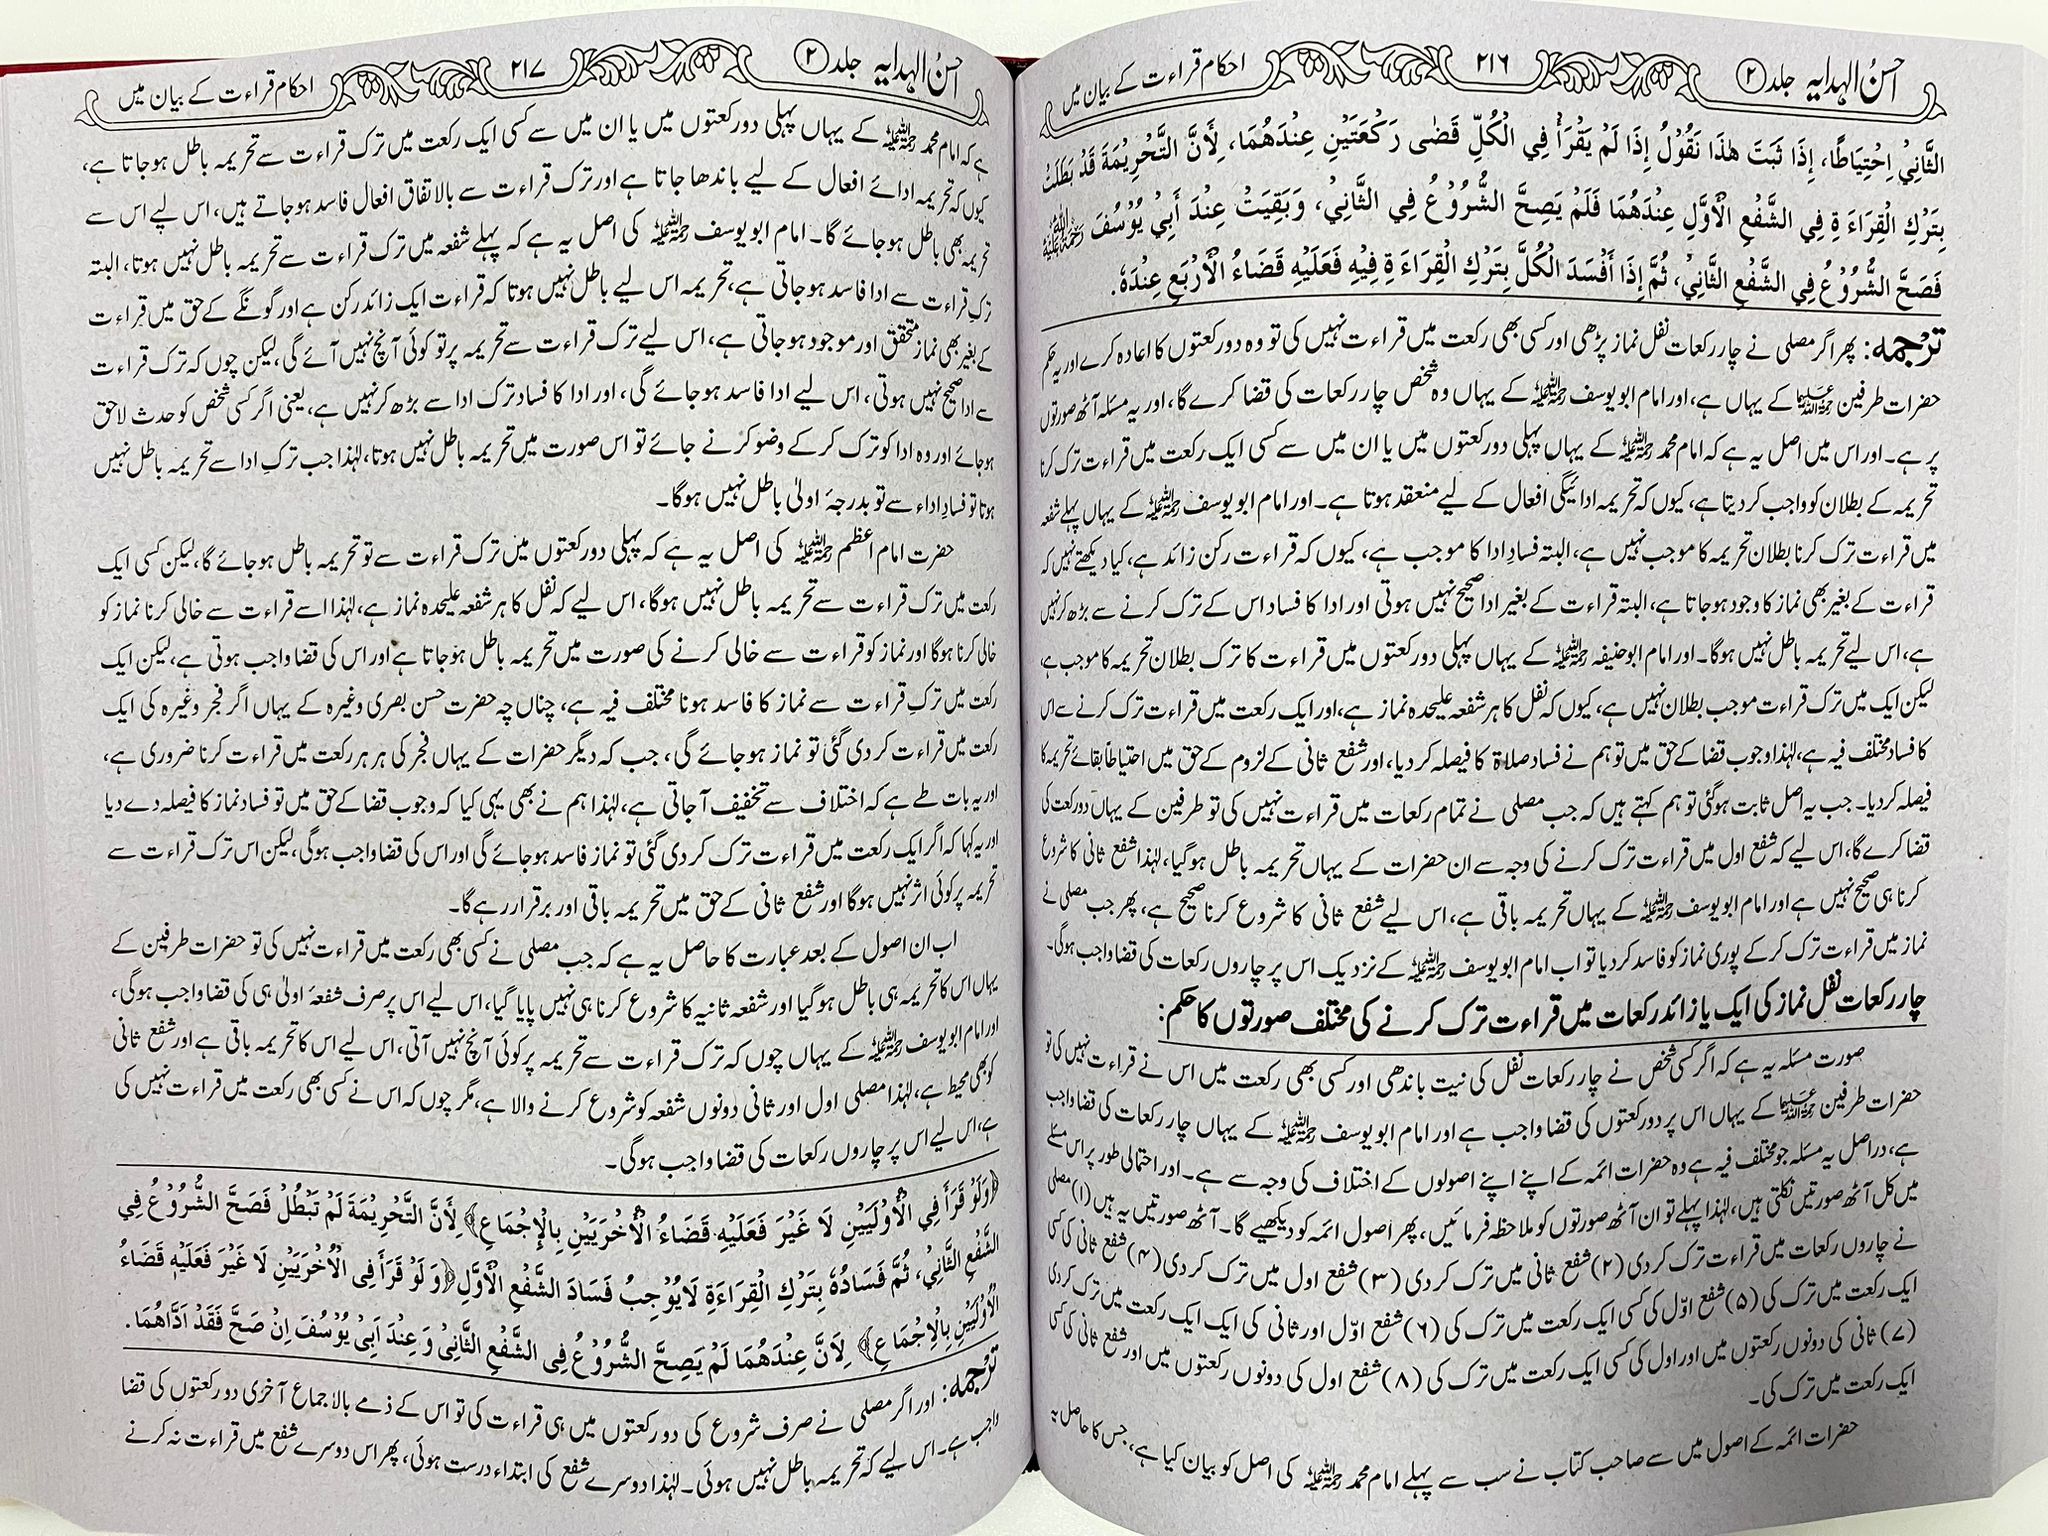 احسن الہدایہ جلد ۲
۲۱۶
احکام قراءت کے بیان میں
الثَّانِيْ اِحْتِيَاطًا، إِذَا ثَبَتَ هٰذَا نَقُوْلُ إِذَا لَمْ يَقْرَأْ فِي الْكُلِّ قَضٰى رَكْعَتَيْنِ عِنْدَهُمَا، لِأَنَّ التَّحْرِيْمَةَ قَدْ بَطَلَتْ
بِتَرْكِ الْقِرَاءَةِ فِي الشَّفْعِ الْأَوَّلِ عِنْدَهُمَا فَلَمْ يَصِحَّ الشُّرُوْعُ فِي الثَّانِيْ، وَبَقِيَتْ عِنْدَ أَبِيْ يُوْسُفَ رَحِمَهُ اللّٰهُ عَلَيْهِ
فَصَحَّ الشُّرُوْعُ فِي الشَّفْعِ الثَّانِيْ، ثُمَّ إِذَا أَفْسَدَ الْكُلَّ بِتَرْكِ الْقِرَاءَةِ فِيْهِ فَعَلَيْهِ قَضَاءُ الْأَرْبَعِ عِنْدَهُ.
ترجمہ: پھر اگر مصلی نے چار رکعات نفل نماز پڑھی اور کسی بھی رکعت میں قراءت نہیں کی تو وہ دو رکعتوں کا اعادہ کرے اور یہ حکم
حضرات طرفین رحمۃ اللہ علیہما کے یہاں ہے، اور امام ابویوسف رحمۃ اللہ علیہ کے یہاں وہ شخص چار رکعات کی قضا کرے گا، اور یہ مسئلہ آٹھ صورتوں
پر ہے۔ اور اس میں اصل یہ ہے کہ امام محمد رحمۃ اللہ علیہ کے یہاں پہلی دو رکعتوں میں یا ان میں سے کسی ایک رکعت میں قراءت ترک کرنا
تحریمہ کے بطلان کو واجب کر دیتا ہے، کیوں کہ تحریمہ ادائیگی افعال کے لیے منعقد ہوتا ہے۔ اور امام ابو یوسف رحمۃ اللہ علیہ کے یہاں پہلے شفعہ
میں قراءت ترک کرنا بطلان تحریمہ کا موجب نہیں ہے، البتہ فسادِ ادا کا موجب ہے، کیوں کہ قراءت رکن زائد ہے، کیا دیکھتے نہیں کہ
قراءت کے بغیر بھی نماز کا وجود ہو جاتا ہے، البتہ قراءت کے بغیر ادا صحیح نہیں ہوتی اور ادا کا فساد اس کے ترک کرنے سے بڑھ کر نہیں
ہے، اس لیے تحریمہ باطل نہیں ہوگا۔ اور امام ابوحنیفہ رحمۃ اللہ علیہ کے یہاں پہلی دو رکعتوں میں قراءت کا ترک بطلان تحریمہ کا موجب ہے،
لیکن ایک میں ترک قراءت موجب بطلان نہیں ہے، کیوں کہ نفل کا ہر شفعہ علیحدہ نماز ہے، اور ایک رکعت میں قراءت ترک کرنے سے اس
کا فساد مختلف فیہ ہے، لہٰذا وجوب قضا کے حق میں تو ہم نے فساد صلاۃ کا فیصلہ کر دیا، اور شفع ثانی کے لزوم کے حق میں احتیاطاً بقائے تحریمہ کا
فیصلہ کر دیا۔ جب یہ اصل ثابت ہوگئی تو ہم کہتے ہیں کہ جب مصلی نے تمام رکعات میں قراءت نہیں کی تو طرفین کے یہاں دو رکعت کی
قضا کرے گا، اس لیے کہ شفع اول میں قراءت ترک کرنے کی وجہ سے ان حضرات کے یہاں تحریمہ باطل ہوگیا، لہٰذا شفع ثانی کا شروع
کرنا ہی صحیح نہیں ہے اور امام ابویوسف رحمۃ اللہ علیہ کے یہاں تحریمہ باقی ہے، اس لیے شفع ثانی کا شروع کرنا صحیح ہے، پھر جب مصلی نے
نماز میں قراءت ترک کر کے پوری نماز کو فاسد کر دیا تو اب امام ابویوسف رحمۃ اللہ علیہ کے نزدیک اس پر چاروں رکعات کی قضا واجب ہوگی۔
چار رکعات نفل نماز کی ایک یا زائد رکعات میں قراءت ترک کرنے کی مختلف صورتوں کا حکم:
صورت مسئلہ یہ ہے کہ اگر کسی شخص نے چار رکعات نفل کی نیت باندھی اور کسی بھی رکعت میں اس نے قراءت نہیں کی تو
حضرات طرفین رحمۃ اللہ علیہما کے یہاں اس پر دو رکعتوں کی قضا واجب ہے اور امام ابو یوسف رحمۃ اللہ علیہ کے یہاں چار رکعات کی قضا واجب
ہے، دراصل یہ مسئلہ جو مختلف فیہ ہے وہ حضرات ائمہ کے اپنے اپنے اصولوں کے اختلاف کی وجہ سے ہے۔ اور احتمالی طور پر اس مسئلے
میں کل آٹھ صورتیں نکلتی ہیں، لہٰذا پہلے تو ان آٹھ صورتوں کو ملاحظہ فرمائیں، پھر اصول ائمہ کو دیکھیے گا۔ آٹھ صورتیں یہ ہیں (۱) مصلی
نے چاروں رکعات میں قراءت ترک کر دی (۲) شفع ثانی میں ترک کر دی (۳) شفع اول میں ترک کر دی (۴) شفع ثانی کی کسی
ایک رکعت میں ترک کی (۵) شفع اوّل کی کسی ایک رکعت میں ترک کی (۶) شفع اوّل اور ثانی کی ایک ایک رکعت میں ترک کردی
(۷) ثانی کی دونوں رکعتوں میں اور اول کی کسی ایک رکعت میں ترک کی (۸) شفع اول کی دونوں رکعتوں میں اور شفع ثانی کی کسی
ایک رکعت میں ترک کی۔
حضرات ائمہ کے اصول میں سے صاحب کتاب نے سب سے پہلے امام محمد رحمۃ اللہ علیہ کی اصل کو بیان کیا ہے، جس کا حاصل یہ
احسن الہدایہ جلد ۲
۲۱۷
احکام قراءت کے بیان میں
ہے کہ امام محمد رحمۃ اللہ علیہ کے یہاں پہلی دو رکعتوں میں یا ان میں سے کسی ایک رکعت میں ترک قراءت سے تحریمہ باطل ہو جاتا ہے،
کیوں کہ تحریمہ ادائے افعال کے لیے باندھا جاتا ہے اور ترک قراءت سے بالاتفاق افعال فاسد ہو جاتے ہیں، اس لیے اس سے
تحریمہ بھی باطل ہو جائے گا۔ امام ابویوسف رحمۃ اللہ علیہ کی اصل یہ ہے کہ پہلے شفعہ میں ترک قراءت سے تحریمہ باطل نہیں ہوتا، البتہ
ترکِ قراءت سے ادا فاسد ہو جاتی ہے، تحریمہ اس لیے باطل نہیں ہوتا کہ قراءت ایک زائد رکن ہے اور گونگے کے حق میں قراءت
کے بغیر بھی نماز متحقق اور موجود ہو جاتی ہے، اس لیے ترک قراءت سے تحریمہ پر تو کوئی آنچ نہیں آئے گی، لیکن چوں کہ ترک قراءت
سے ادا صحیح نہیں ہوتی، اس لیے ادا فاسد ہو جائے گی، اور ادا کا فساد ترک ادا سے بڑھ کر نہیں ہے، یعنی اگر کسی شخص کو حدث لاحق
ہو جائے اور وہ ادا کو ترک کر کے وضو کرنے جائے تو اس صورت میں تحریمہ باطل نہیں ہوتا، لہٰذا جب ترکِ ادا سے تحریمہ باطل نہیں
ہوتا تو فسادِ اداء سے تو بدرجۂ اولیٰ باطل نہیں ہوگا۔
حضرت امام اعظم رحمۃ اللہ علیہ کی اصل یہ ہے کہ پہلی دو رکعتوں میں ترک قراءت سے تو تحریمہ باطل ہو جائے گا، لیکن کسی ایک
رکعت میں ترک قراءت سے تحریمہ باطل نہیں ہوگا، اس لیے کہ نفل کا ہر شفعہ علیحدہ نماز ہے، لہٰذا اسے قراءت سے خالی کرنا نماز کو
خالی کرنا ہوگا اور نماز کو قراءت سے خالی کرنے کی صورت میں تحریمہ باطل ہو جاتا ہے اور اس کی قضا واجب ہوتی ہے، لیکن ایک
رکعت میں ترکِ قراءت سے نماز کا فاسد ہونا مختلف فیہ ہے، چناں چہ حضرت حسن بصری وغیرہ کے یہاں اگر فجر وغیرہ کی ایک
رکعت میں قراءت کر دی گئی تو نماز ہو جائے گی، جب کہ دیگر حضرات کے یہاں فجر کی ہر ہر رکعت میں قراءت کرنا ضروری ہے،
اور یہ بات طے ہے کہ اختلاف سے تخفیف آجاتی ہے، لہٰذا ہم نے بھی یہی کیا کہ وجوب قضا کے حق میں تو فساد نماز کا فیصلہ دے دیا
اور یہ کہا کہ اگر ایک رکعت میں قراءت ترک کر دی گئی تو نماز فاسد ہو جائے گی اور اس کی قضا واجب ہوگی، لیکن اس ترک قراءت سے
تحریمہ پر کوئی اثر نہیں ہوگا اور شفع ثانی کے حق میں تحریمہ باقی اور برقرار رہے گا۔
اب ان اصول کے بعد عبارت کا حاصل یہ ہے کہ جب مصلی نے کسی بھی رکعت میں قراءت نہیں کی تو حضرات طرفین کے
یہاں اس کا تحریمہ ہی باطل ہوگیا اور شفعہ ثانیہ کا شروع کرنا ہی نہیں پایا گیا، اس لیے اس پر صرف شفعۂ اولیٰ ہی کی قضا واجب ہوگی،
اور امام ابویوسف رحمۃ اللہ علیہ کے یہاں چوں کہ ترک قراءت سے تحریمہ پر کوئی آنچ نہیں آتی، اس لیے اس کا تحریمہ باقی ہے اور شفع ثانی
کو بھی محیط ہے، لہٰذا مصلی اول اور ثانی دونوں شفعہ کو شروع کرنے والا ہے، مگر چوں کہ اس نے کسی بھی رکعت میں قراءت نہیں کی
ہے، اس لیے اس پر چاروں رکعات کی قضا واجب ہوگی۔
﴿وَلَوْ قَرَأَ فِي الْأُوْلَيَيْنِ لَا غَيْرَ فَعَلَيْهِ قَضَاءُ الْأُخْرَيَيْنِ بِالْإِجْمَاعِ﴾ لِأَنَّ التَّحْرِيْمَةَ لَمْ تَبْطُلْ فَصَحَّ الشُّرُوْعُ فِي
الشَّفْعِ الثَّانِيْ، ثُمَّ فَسَادُهُ بِتَرْكِ الْقِرَاءَةِ لَايُوْجِبُ فَسَادَ الشَّفْعِ الْأَوَّلِ ﴿وَ لَوْ قَرَأَ فِي الْأُخْرَيَيْنِ لَا غَيْرَ فَعَلَيْهِ قَضَاءُ
الْأُوْلَيَيْنِ بِالْاِجْمَاعِ﴾ لِاَنَّ عِنْدَهُمَا لَمْ يَصِحَّ الشُّرُوْعُ فِي الشَّفْعِ الثَّانِيْ وَ عِنْدَ اَبِيْ يُوْسُفَ اِنْ صَحَّ فَقَدْ اَدَّاهُمَا.
ترجمہ: اور اگر مصلی نے صرف شروع کی دو رکعتوں میں ہی قراءت کی تو اس کے ذمے بالاجماع آخری دو رکعتوں کی قضا
واجب ہے۔ اس لیے کہ تحریمہ باطل نہیں ہوئی۔ لہٰذا دوسرے شفع کی ابتداء درست ہوئی، پھر اس دوسرے شفع میں قراءت نہ کرنے